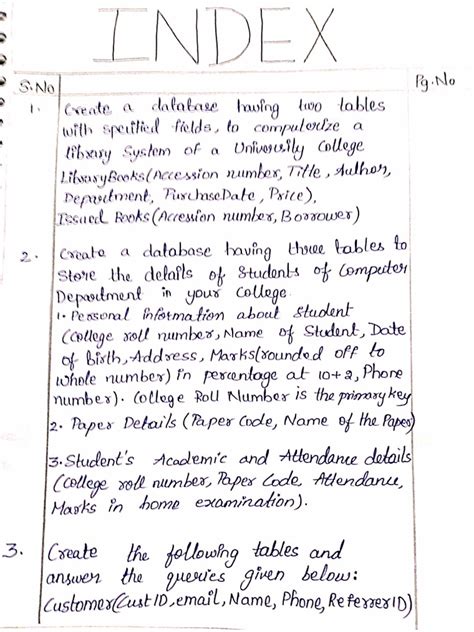 INDEX
S.No
Pg.No
1. Create a database having two tables
with specified fields, to computerize a
library System of a University College
LibraryBooks(Accession number, Title, Author,
Department, PurchaseDate, Price),
Issued Books(Accession number, Borrower)
2. Create a database having three tables to
Store the details of Students of Computer
Department in your College.
1. Personal information about Student
(College roll number, Name of Student, Date
of Birth, Address, Marks(rounded off to
whole number) in percentage at 10+2, Phone
number). College Roll Number is the primary key
2. Paper Details (Paper Code, Name of the Paper)
3. Student's Academic and Attendance details
(College roll number, Paper Code, Attendance,
Marks in home examination).
3. Create the following tables and
answer the queries given below:
Customer(CustID, email, Name, Phone, ReferrerID)